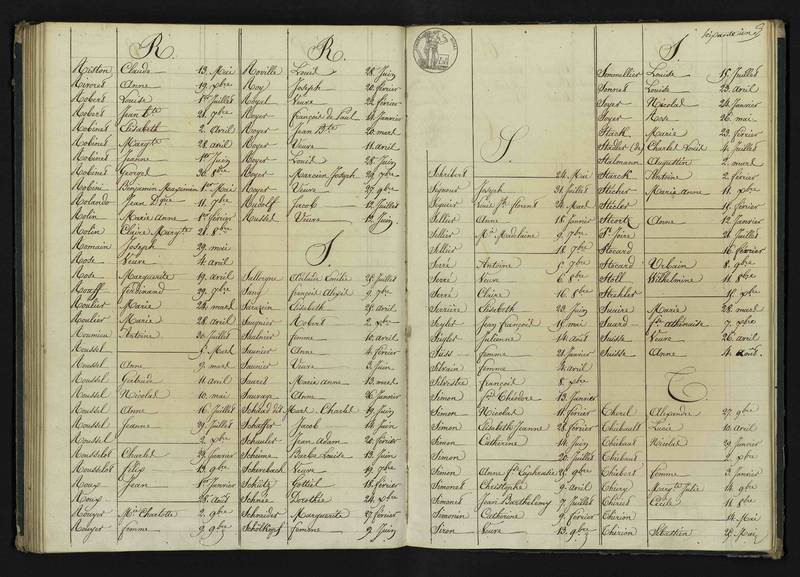 R.
Riston Claude 13. Mai
Rivoret Anne 19. xbre
Robert Louise 1er Juillet
Robert Jean Bte 21. 7bre
Robinet Elisabeth 2. avril
Robinet Margte 28. avril
Robinet Jeanne 1er Juin
Robinet George 30. 8bre
Robini Benjamin Maximin 1er Mai
Rolando Jean Dque 11. 7bre
Rolin Marie Anne 1er fevrier
Rolin Claire Margte 21. 8bre
Romain Joseph 29. mai
Rose Veuve 4. avril
Rose Marguerite 19. avril
Rouff Ferdinand 29. 9bre
Roulier Marie 24. mard
Roulier Marie 28. avril
Roumieu Antoine 30. Juillet
Roussel 5. Mard
Roussel Anne 9. mard
Roussel Gertrude 11. avril
Roussel Nicolas 10. mai
Roussel Anne 16. Juillet
Roussel Jeanne 29. Juillet
Roussel 2. xbre
Rousselot Charles 29. Janvier
Rousselot felix 13. 9bre
Roux Jean 1er Janvier
Roux 28. Août
Rouyer Mie Charlotte 2. 9bre
Rouyer femme 9. 9bre
R.
Roville Louis 28. Juin
Roy Joseph 20. fevrier
Royer Veuve 22. fevrier
Royer François de Paul 4. Janvier
Royer Jean Bte 20. mard
Royer Veuve 11. avril
Royer Louis 28. Juin
Royer Marcien Joseph 29. 7bre
Royer Veuve 27. 9bre
Rudolf Jacob 12. Juillet
Russel Veuve 1er Juin
S.
Sallerynne Emilie 25. Juillet
Sang François Alexis 9. 7bre
Sarazin Elisabeth 25. avril
Saugnier Robert 2. xbre
Saulnier femme 10. avril
Saunier Anne 4. fevrier
Saunier Veuve 5. Juin
Sauret Marie Anne 13. mard
Sauvage Anne 26. Janvier
Schaad dit Mard. Charles 19. Juin
Schaffer Jacob 14. Juin
Schauler Jean Adam 20. fevrier
Scheinne Barbe Louise 13. Juin
Schenbach Veuve 19. 7bre
Schültz Gottiel 18. fevrier
Schnée Dorothée 24. xbre
Schneider Marguerite 27. fevrier
Schölkopf femme 9. Juin
S.
Schribert 24. Mai
Seigneur Joseph 31. Juillet
Seguier Louis Jh florent 24. Mard
Sellier Anne 18. Janvier
Sellier Mie Madelaine 9. 7bre
Sellier 18. 7bre
Serré Antoine 5. 7bre
Serré Veuve 6. 8bre
Serré Claire 16. 8bre
Serrière Elisabeth 22. Juin
Seyler Jean François 15. mai
Sigler Julienne 14. août
Süss femme 21. Janvier
Silvain femme 4. avril
Silvestre François 8. xbre
Simon fois Théodore 13. Janvier
Simon Nicolas 11. fevrier
Simon Elisabeth Jeanne 28. fevrier
Simon Catherine 14. Juin
Simon 20. Juillet
Simon Anne fse Euphrasie 9bre
Simonet Christophe 9. avril
Simonet Jean Barthelemy 7. Juillet
Simonin Catherine 9. fevrier
Siron Veuve 13. 9bre
S.
Sommellier Louise 15. Juillet
Sonret Louise 23. avril
Soyer Nicolas 24. Janvier
Soyer Rose 26. mai
Stack Marie 23. fevrier
Charles Louis 4. Juillet
Stalmann Augustin 2. mard
Starck Antoine 2. fevrier
Steiher Marie Anne 11. xbre
Steiler 15. fevrier
Stortz Anne 12. Janvier
St Joire 26. Juillet
Stocard 16. fevrier
Stocard Urbain 8. 9bre
Stoll Wilhelmine 11. 8bre
Strahler xbre
Suaire Marie 28. mard
Suard fse athénaise 7. xbre
Suisse Veuve 26. avril
Suisse Anne 4. août.
T.
Therel Alexandre 27. 9bre
Thiebault Lucie 10. avril
Thiebaut Nicolas 29. Janvier
Thiebaut 2. xbre
Thiebert femme 3. Janvier
Thiery Margte Julie 14. 9bre
Thirier Cécile 11. 8bre
Thirion 14. Mai
Thirion Sébastien 25. Mai